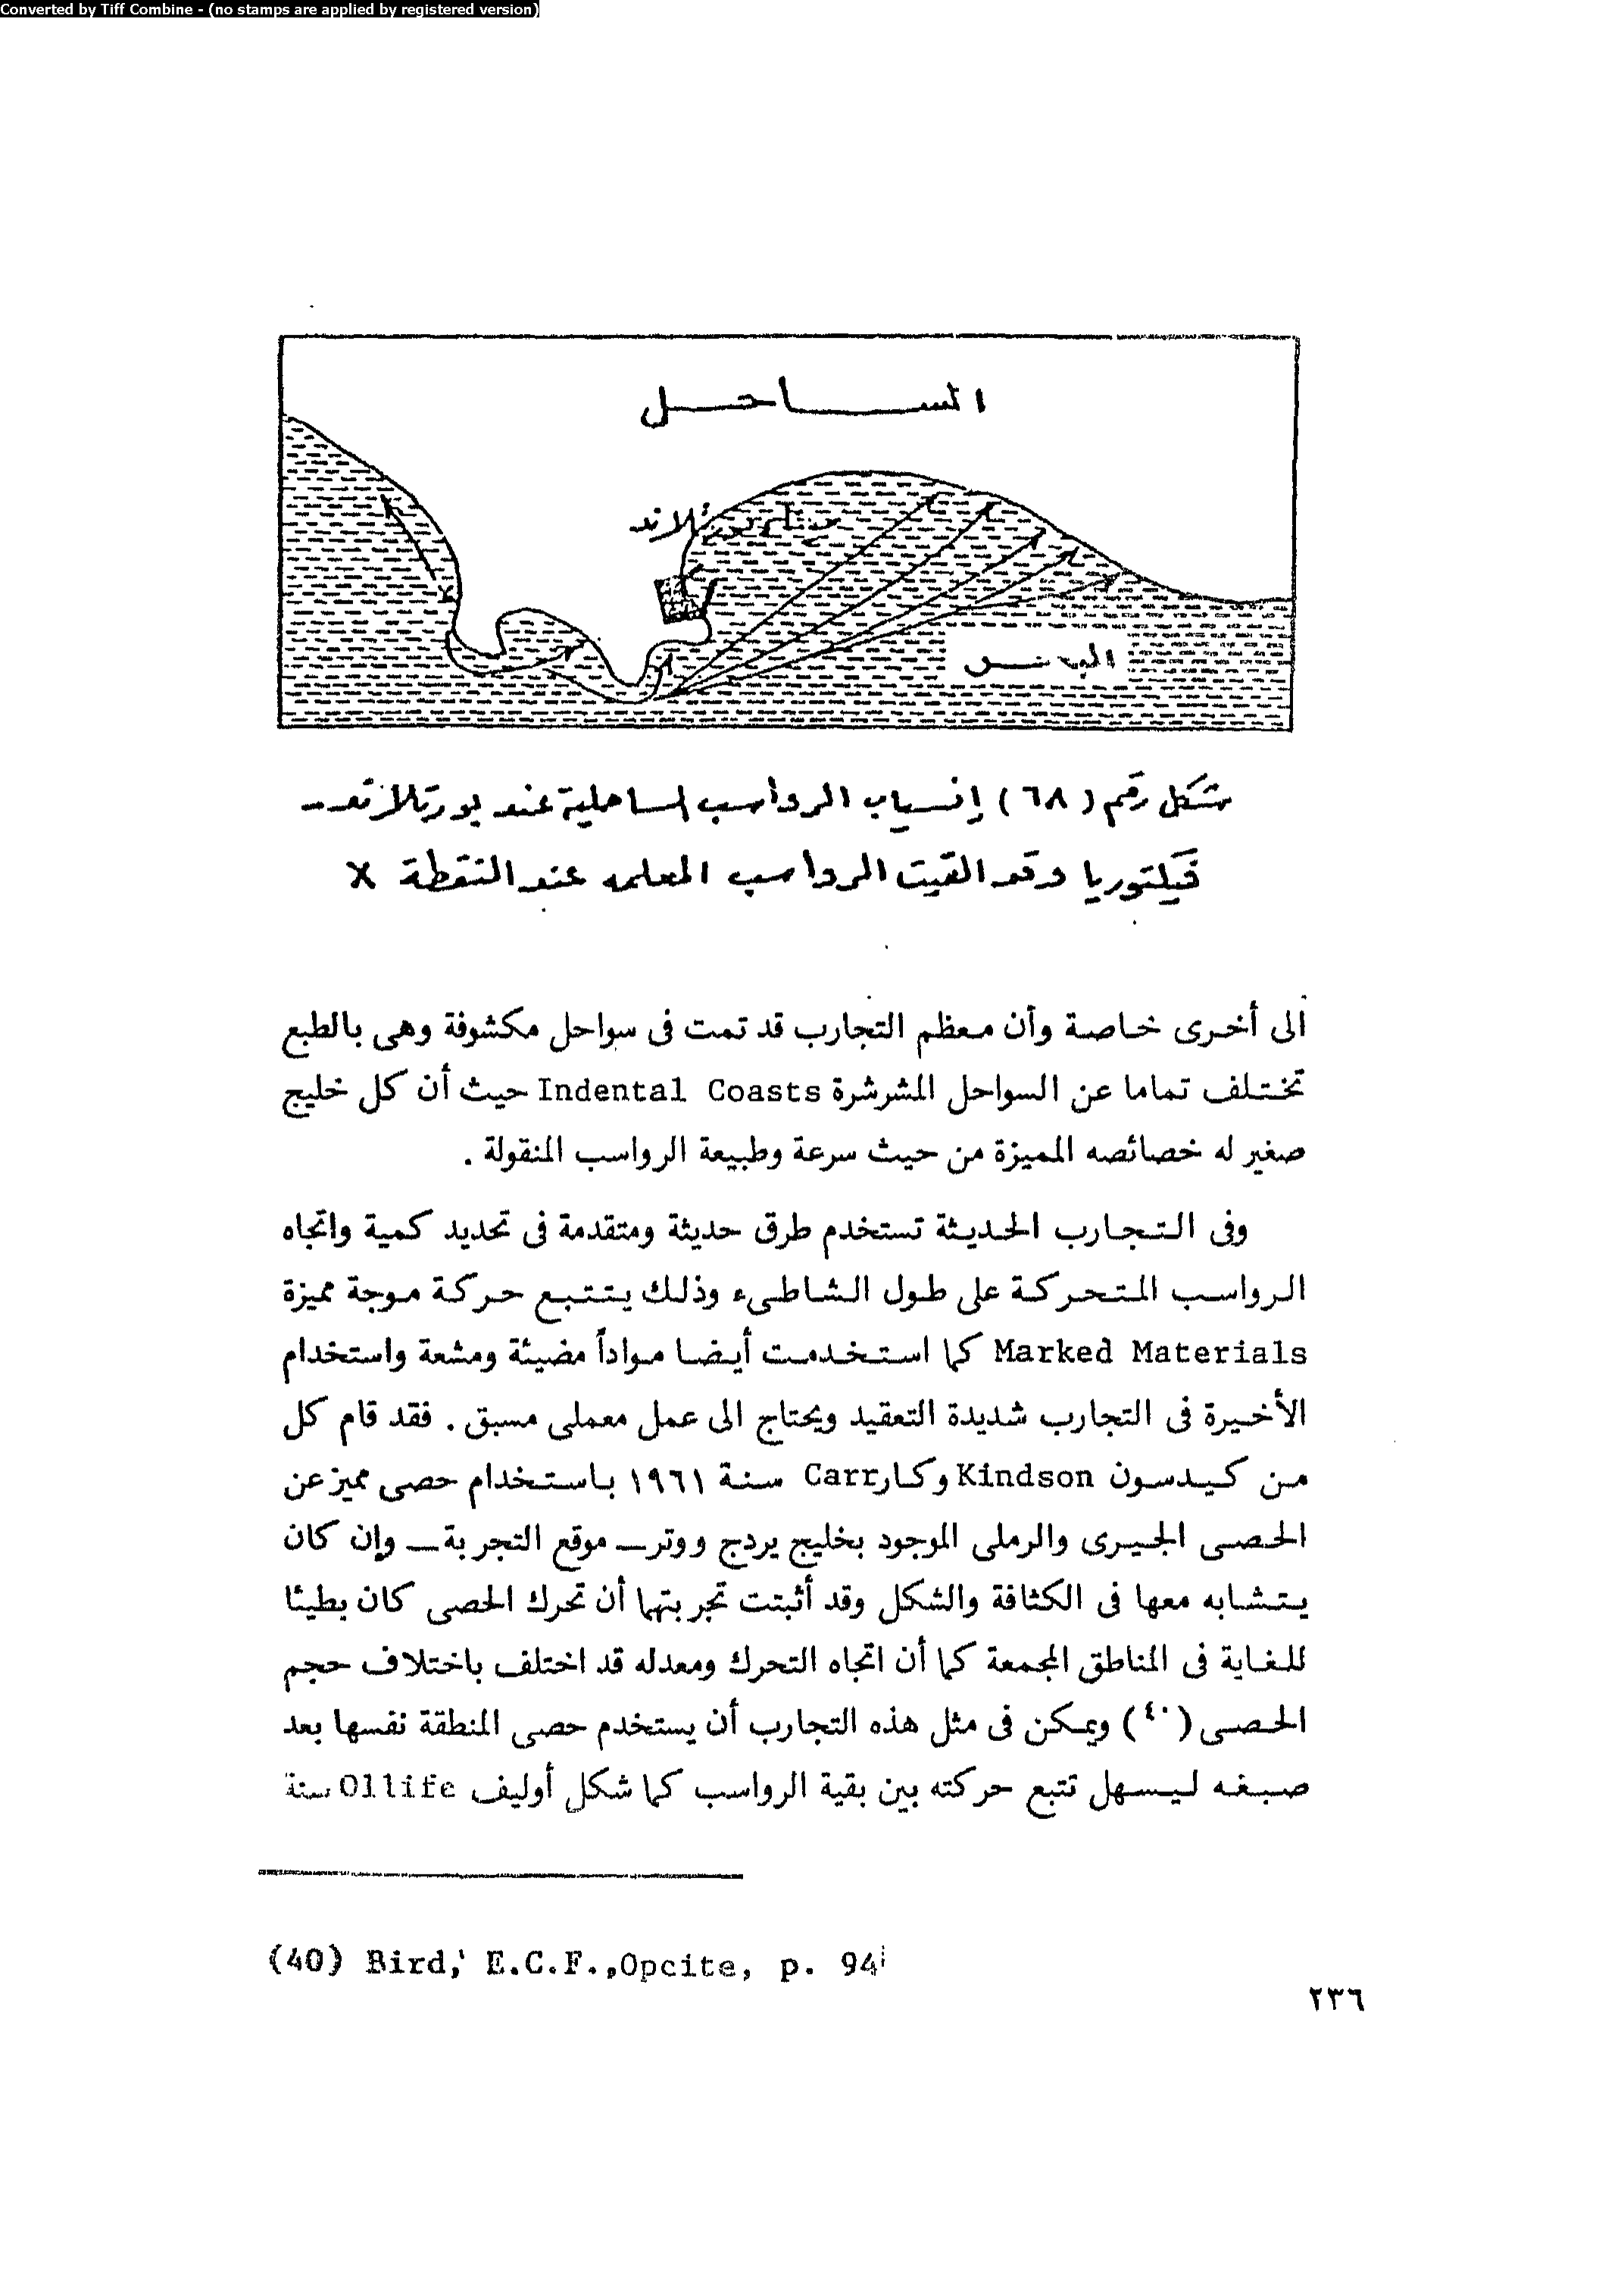 Converted by Tiff Combine - (no stamps are applied by registered version)
الساحل
شكل رقم (٦٨) إنسياب الرواسب الساحلية عند بورتلاند -
فيكتوريا وقد القيت الرواسب المعلمه عند النقطة X
الى أخرى خاصة وأن معظم التجارب قد تمت فى سواحل مكشوفة وهى بالطبع
تختلف تماما عن السواحل المشرشرة Indental Coasts حيث أن كل خليج
صغير له خصائصه المميزة من حيث سرعة وطبيعة الرواسب المنقولة .
وفى التجارب الحديثة تستخدم طرق حديثة ومتقدمة فى تحديد كمية واتجاه
الرواسب المتحركة على طول الشاطىء وذلك يتتبع حركة موجة مميزة
Marked Materials كما استخدمت أيضا مواداً مضيئة ومشعة واستخدام
الأخيرة فى التجارب شديدة التعقيد ويحتاج الى عمل معملى مسبق . فقد قام كل
من كيدسون Kindson وكار Carr سنة ١٩٦١ باستخدام حصى مميز عن
الحصى الجيرى والرملى الموجود بخليج يردج ووتر ــ موقع التجربة ــ وإن كان
يتشابه معها فى الكثافة والشكل وقد أثبتت تجربتهما أن تحرك الحصى كان بطيئا
للغاية فى المناطق المجمعة كما أن اتجاه التحرك ومعدله قد اختلف باختلاف حجم
الحصى (٤٠) ويمكن فى مثل هذه التجارب أن يستخدم حصى المنطقة نفسها بعد
صبغه ليسهل تتبع حركته بين بقية الرواسب كما شكل أوليف Ollife سنة
(40) Bird, E.C.F., Opcite, p. 94
٢٣٦